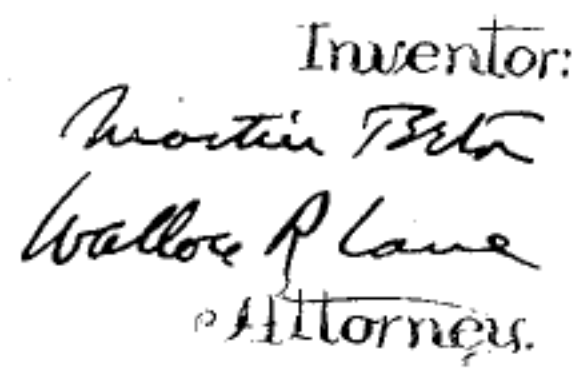 Inventor:
Martin
Wallace R Lane
Attorney.